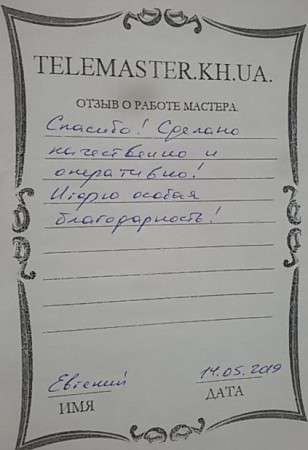 TELEMASTER.KH.UA.
ОТЗЫВ О РАБОТЕ МАСТЕРА.
Спасибо! Сделано
качественно и
оперативно!
Игорю особая
благодарность!
Евгений 14.05.2019
ИМЯ ДАТА